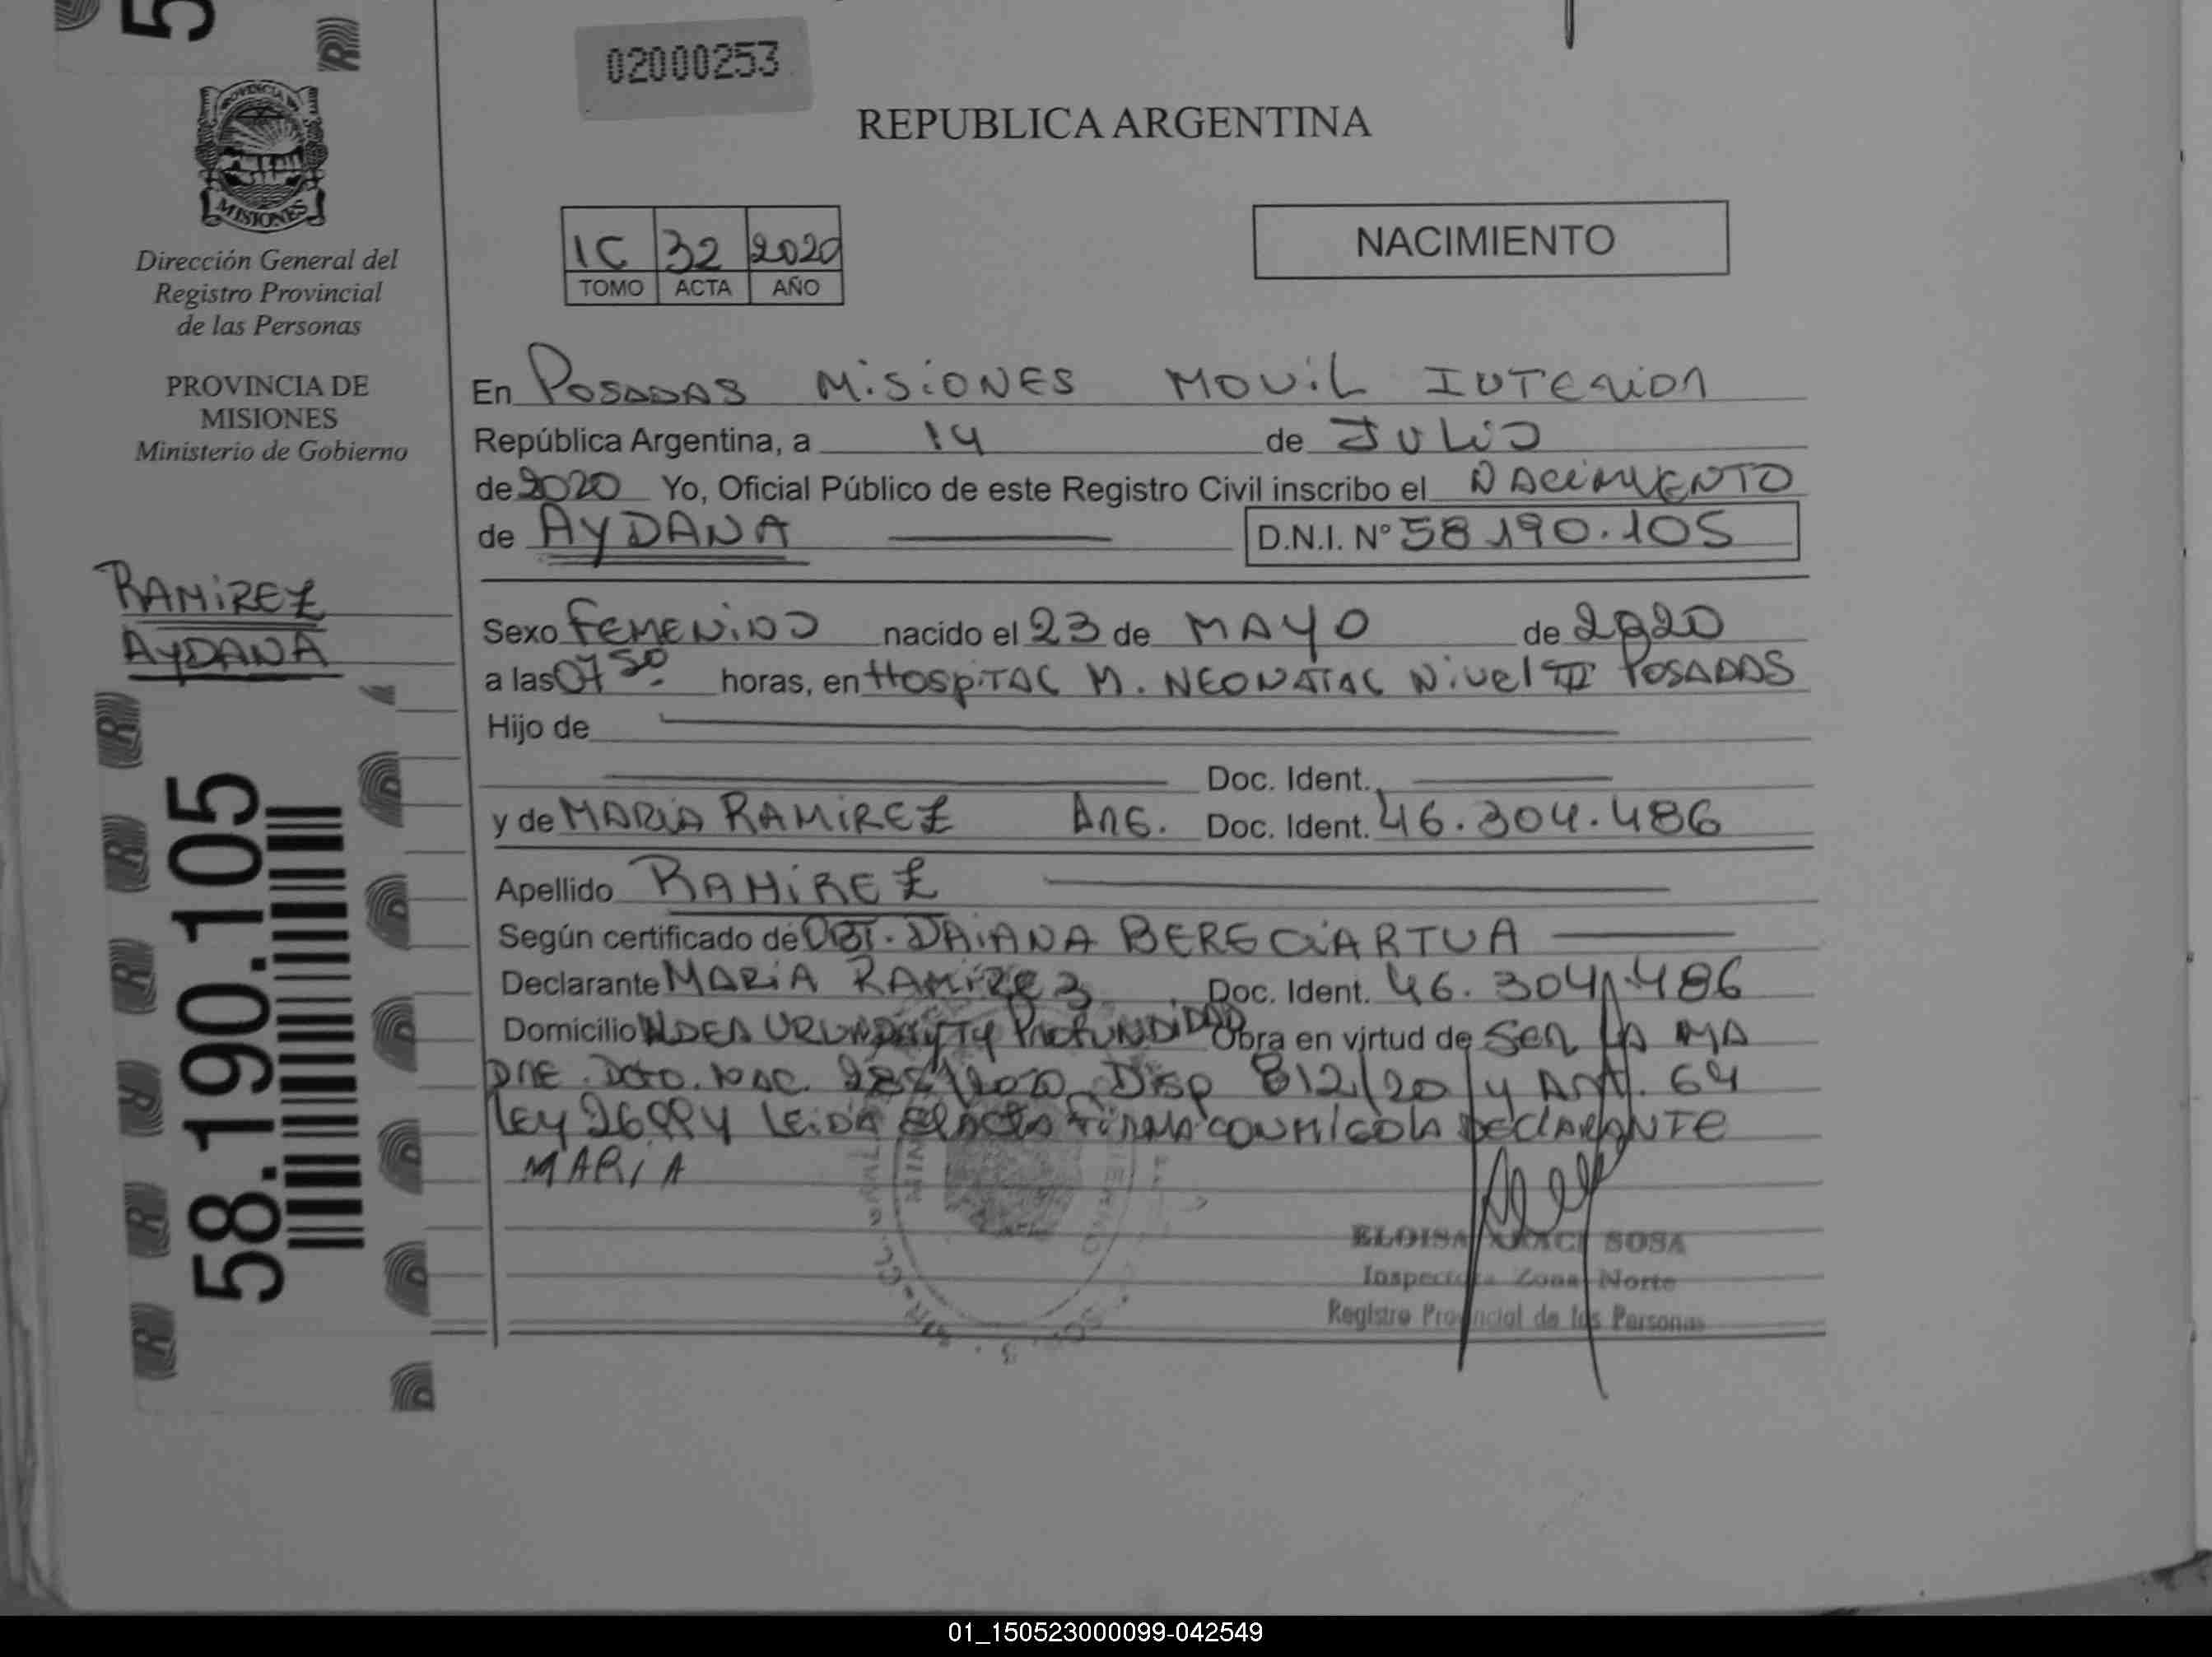 02000253
REPUBLICA ARGENTINA
PROVINCIA DE
MISIONES
Dirección General del
Registro Provincial
de las Personas
PROVINCIA DE
MISIONES
Ministerio de Gobierno
RAMIREZ
AYDANA
58.190.105
1C 32 2020
TOMO ACTA AÑO
NACIMIENTO
En POSADAS MISIONES MOVIL INTERIOR
República Argentina, a 14 de JULIO
de 2020 Yo, Oficial Público de este Registro Civil inscribo el NACIMIENTO
de AYDANA D.N.I. N° 58 190.105
Sexo FEMENINO nacido el 23 de MAYO de 2020
a las 07 50 horas, en HOSPITAL M. NEONATAL Nivel III POSADAS
Hijo de
Doc. Ident.
y de MARIA RAMIREZ ARG. Doc. Ident. 46.304.486
Apellido RAMIREZ
Según certificado de OBT. DAIANA BEREGIARTUA
Declarante MARIA RAMIREZ Doc. Ident. 46.304.486
Domicilio ALDEA PROFUNDIDAD Obra en virtud de SER LA MA
DRE. DCTO. NAC. DISP 812/20 y ART. 64
LEY 26994 LEIDA EL ACTA FIRMA CONMIGO LA DECLARANTE
MARIA
ELOISA SOSA
Inspectora Zona Norte
Registro Provincial de las Personas
01_150523000099-042549